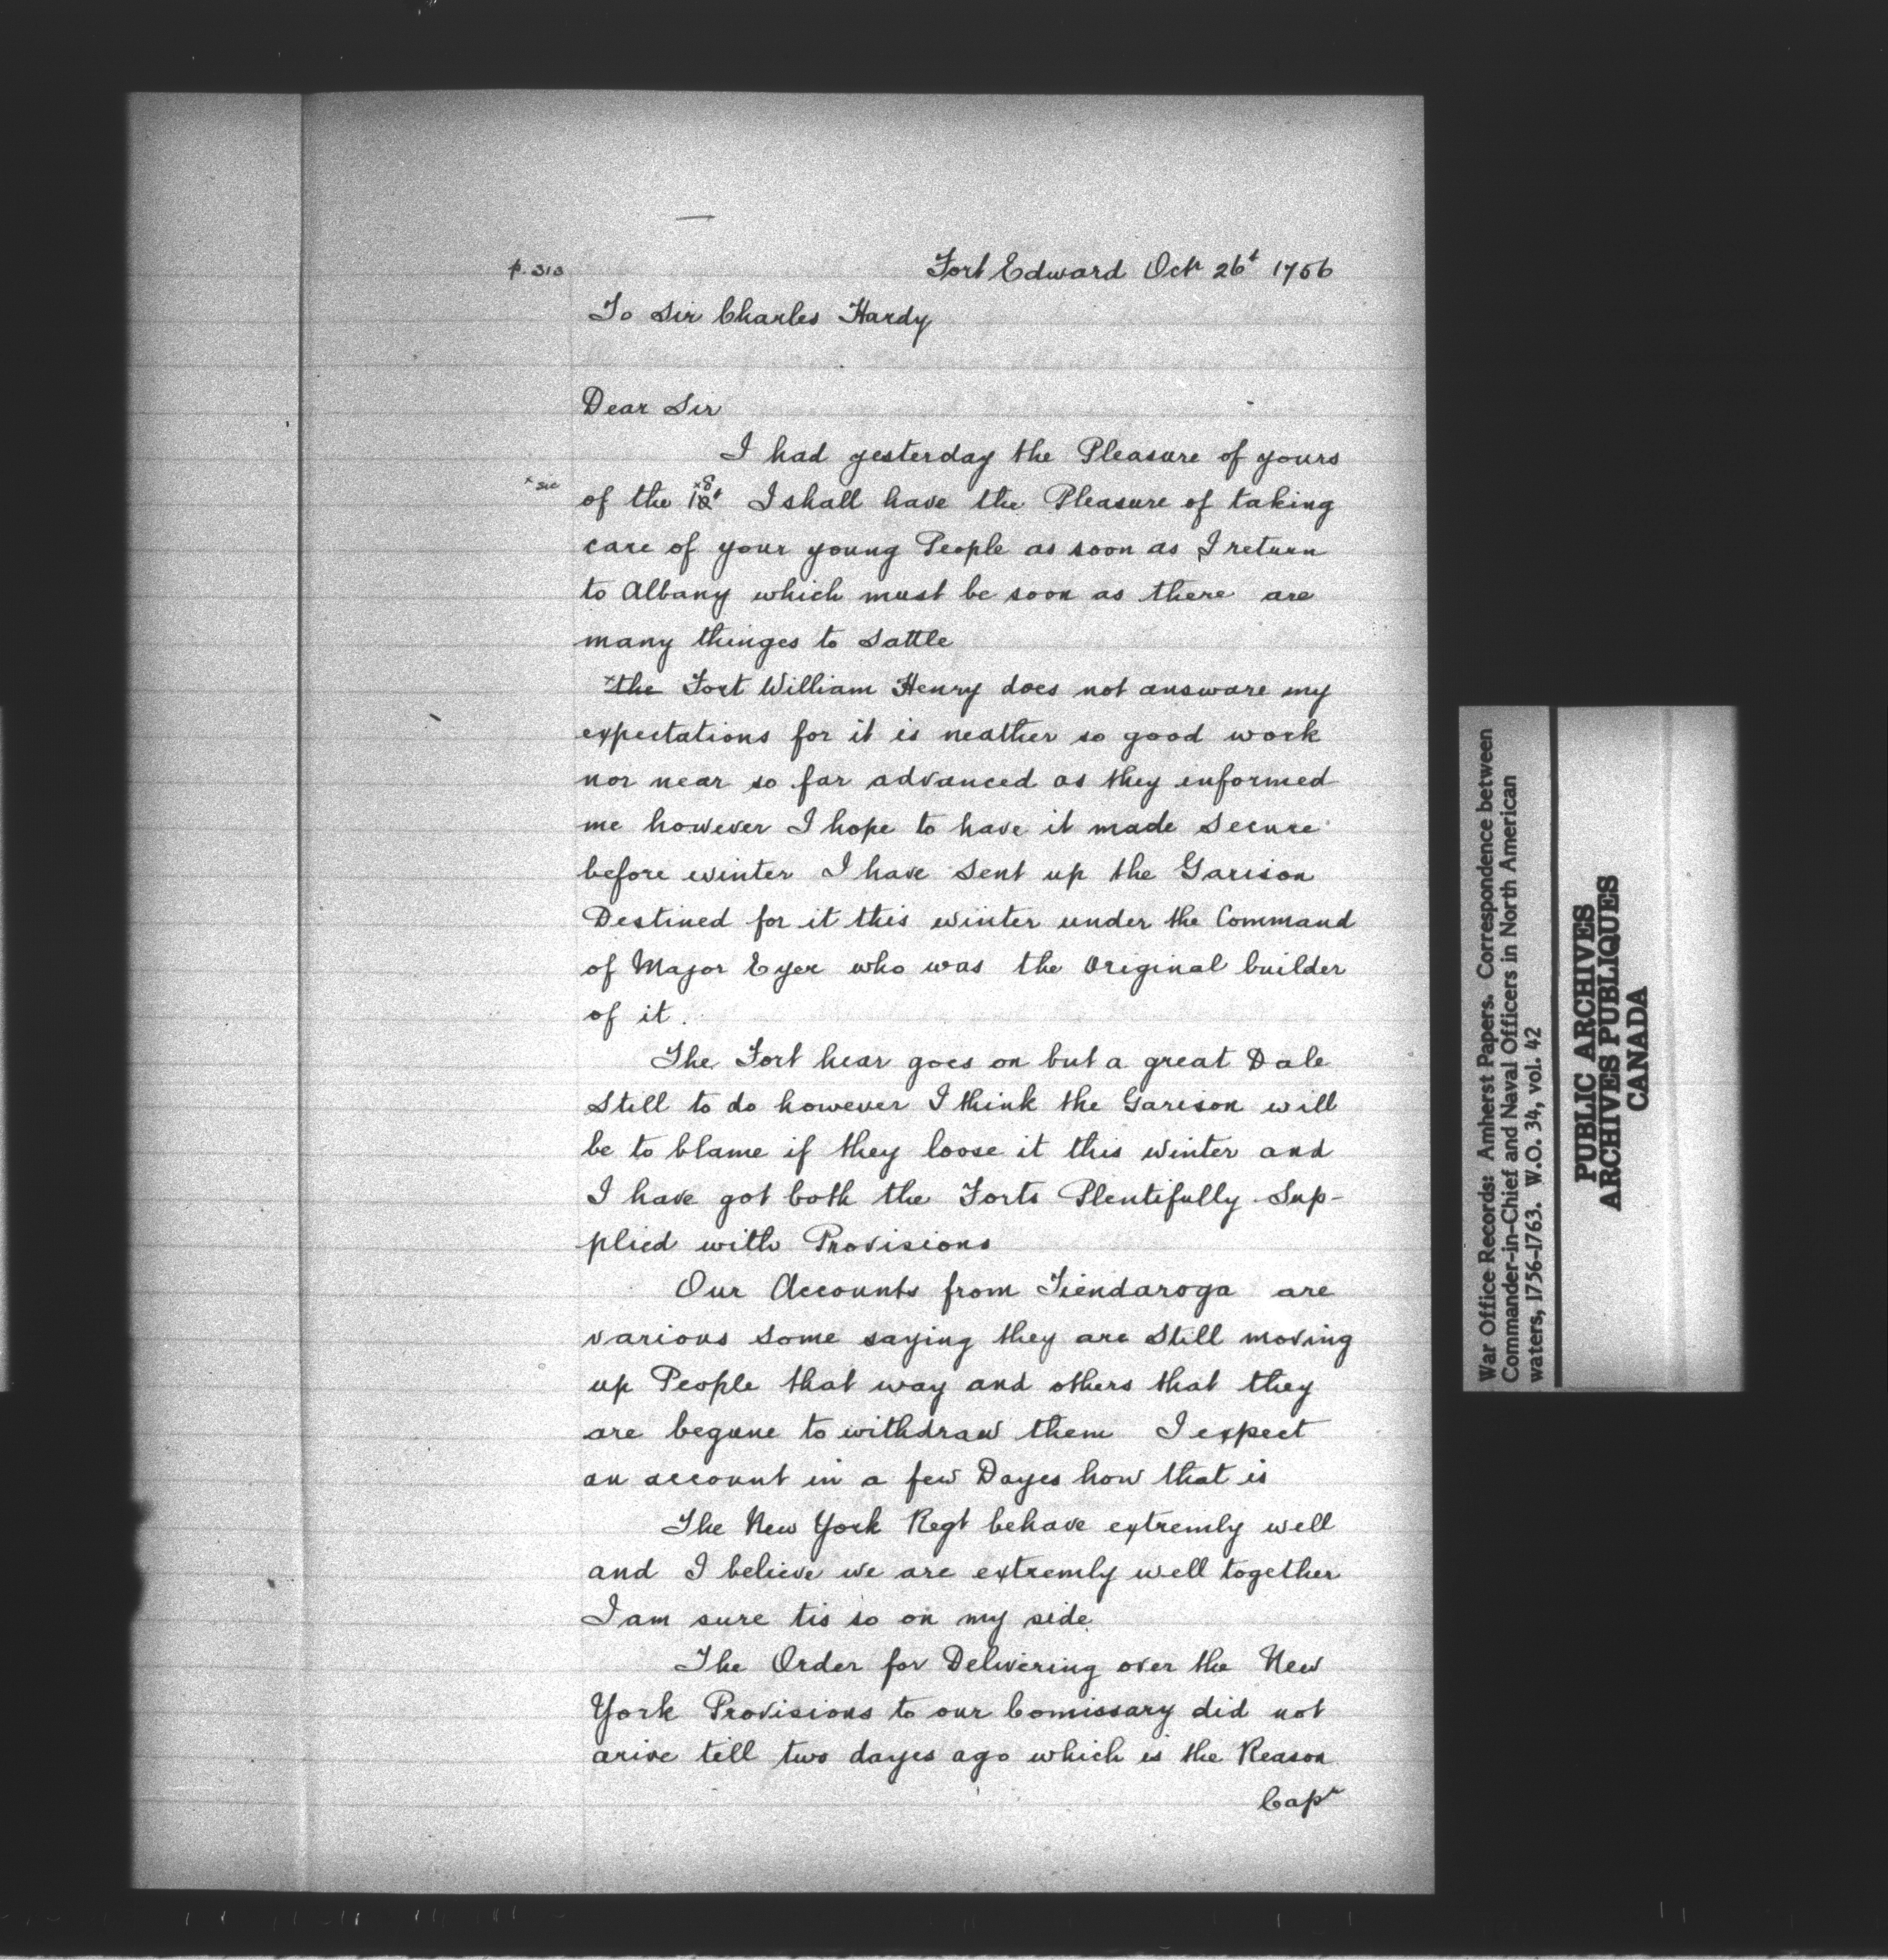 p. 313
Fort Edward Octr 26t 1756
To Sir Charles Hardy
Dear Sir
I had yesterday the Pleasure of yours
x sic
of the x8 18t I shall have the Pleasure of taking
care of your young People as soon as I return
to Albany which must be soon as there are
many thinges to Sattle
x the Fort William Henry does not answare my
expectations for it is neather so good work
nor near so far advanced as they informed
me however I hope to have it made Secure
before winter I have Sent up the Garison
Destined for it this winter under the Command
of Major Eyer who was the Original builder
of it.
The Fort hear goes on but a great Dale
Still to do however I think the Garison will
be to blame if they loose it this winter and
I have got both the Forts Plentifully Sup-
plied with Provisions
Our Accounts from Tiendaroga are
various Some saying they are Still moving
up People that way and others that they
are begune to withdraw them I expect
an account in a few Dayes how that is
The New York Regt behave extremly well
and I believe we are extremly well together
I am sure tis so on my side.
The Order for Delivering over the New
York Provisions to our Comissary did not
arive till two dayes ago which is the Reason
Capr
War Office Records: Amherst Papers. Correspondence between
Commander-in-Chief and Naval Officers in North American
waters, 1756-1763. W.O. 34, vol. 42
PUBLIC ARCHIVES
ARCHIVES PUBLIQUES
CANADA